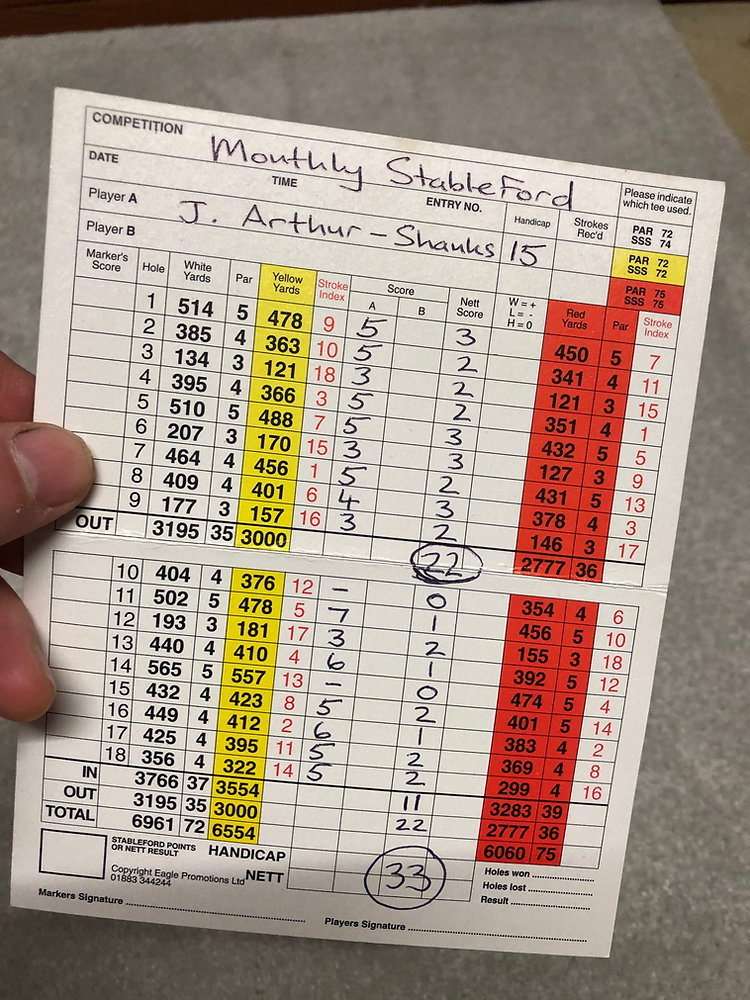 COMPETITION Monthly StableFord
DATE TIME ENTRY NO. Handicap Strokes Rec'd Please indicate which tee used.
Player A J. Arthur - Shanks 15 PAR 72 SSS 74
Player B PAR 72 SSS 72
PAR 75 SSS 75
Marker's Score Hole White Yards Par Yellow Yards Stroke Index Score A B Nett Score W = + L = - H = 0 Red Yards Par Stroke Index
1 514 5 478 9 5 3 450 5 7
2 385 4 363 10 5 2 341 4 11
3 134 3 121 18 3 2 121 3 15
4 395 4 366 3 5 2 351 4 1
5 510 5 488 7 5 3 432 5 5
6 207 3 170 15 3 3 127 3 9
7 464 4 456 1 5 2 431 5 13
8 409 4 401 6 4 3 378 4 3
9 177 3 157 16 3 2 146 3 17
OUT 3195 35 3000 22 2777 36
10 404 4 376 12 - 0 354 4 6
11 502 5 478 5 7 1 456 5 10
12 193 3 181 17 3 2 155 3 18
13 440 4 410 4 6 1 392 5 12
14 565 5 557 13 - 0 474 5 4
15 432 4 423 8 5 2 401 5 14
16 449 4 412 2 6 1 383 4 2
17 425 4 395 11 5 2 369 4 8
18 356 4 322 14 5 2 299 4 16
IN 3766 37 3554 11 3283 39
OUT 3195 35 3000 22 2777 36
TOTAL 6961 72 6554 6060 75
STABLEFORD POINTS OR NETT RESULT HANDICAP
Copyright Eagle Promotions Ltd 01883 344244 NETT 33
Holes won
Holes lost
Result
Markers Signature
Players Signature